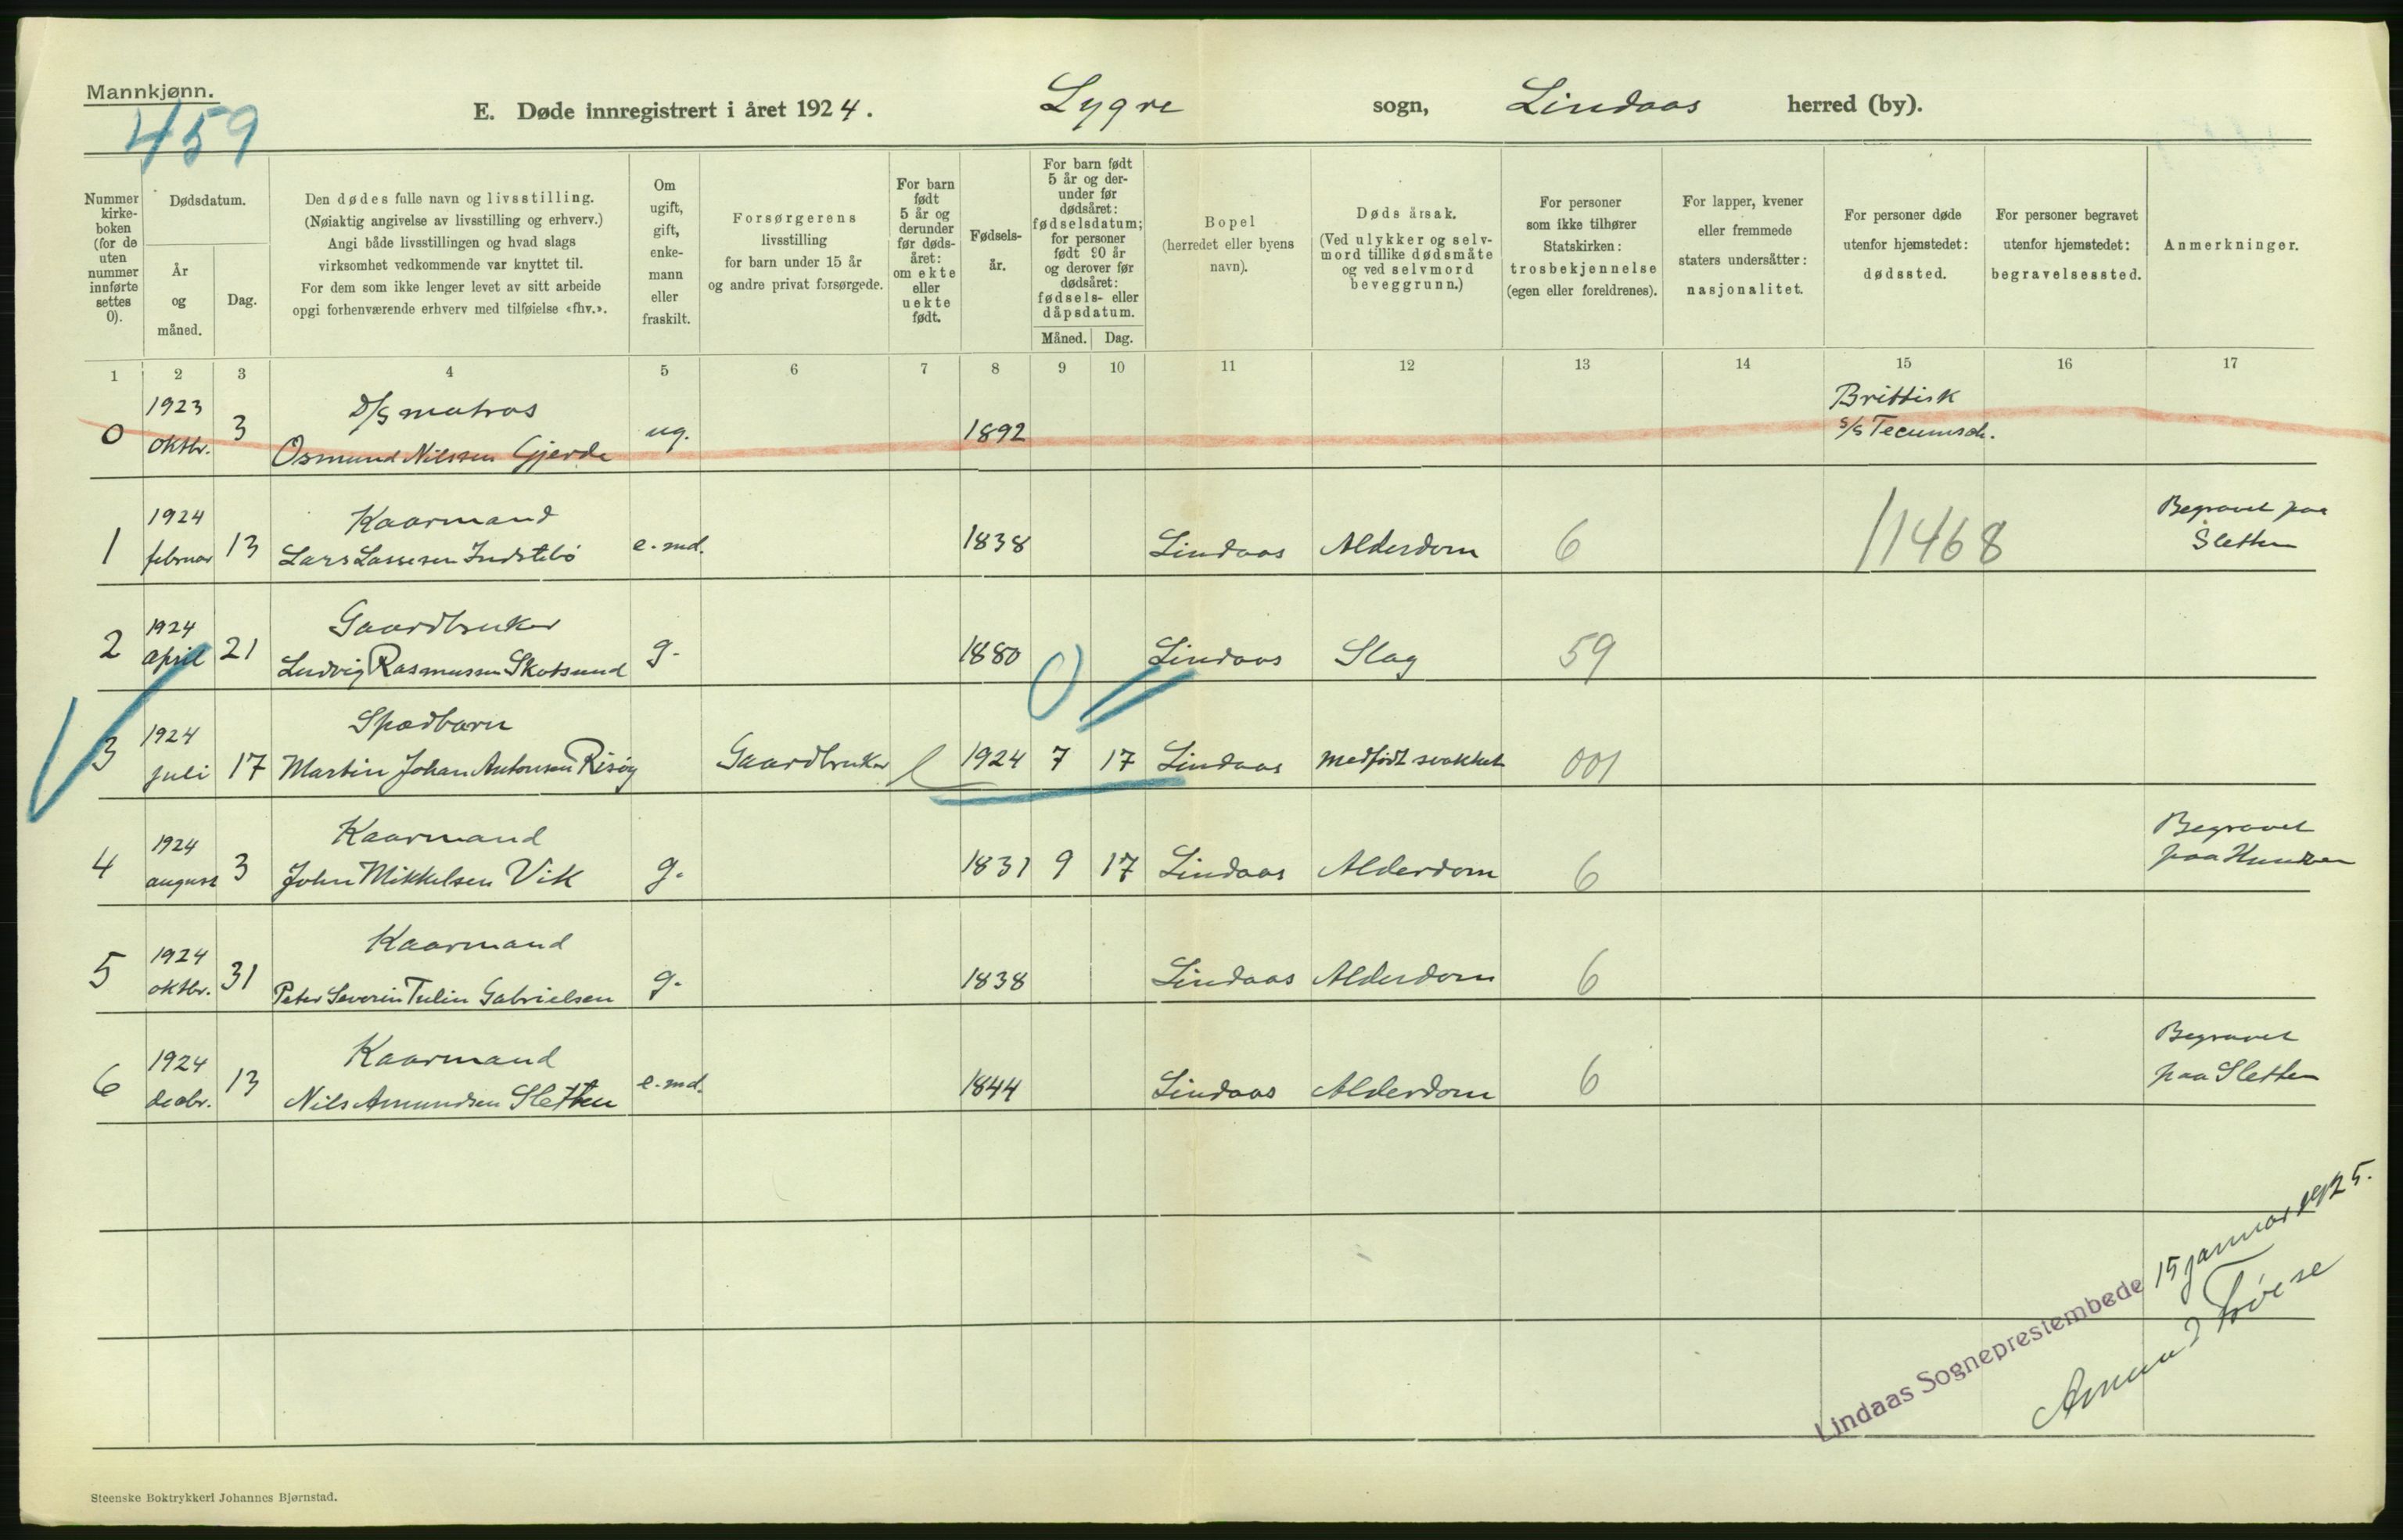 Mannkjønn.
459
E. Døde innregistrert i året 1924. Lygre sogn, Lindaas herred (by).
Nummer kirke-boken (for de uten nummer innførte settes 0).
Dødsdatum.
År og måned.
Dag.
Den dødes fulle navn og livsstilling.
(Nøiaktig angivelse av livsstilling og erhverv.)
Angi både livsstillingen og hvad slags
virksomhet vedkommende var knyttet til.
For dem som ikke lenger levet av sitt arbeide
opgi forhenværende erhverv med tilføielse «fhv.».
Om ugift, gift, enke-mann eller fraskilt.
Forsørgerens
livsstilling
for barn under 15 år
og andre privat forsørgede.
For barn født 5 år og derunder før døds-året: om ekte eller uekte født.
Fødsels-år.
For barn født 5 år og der-under før dødsåret: fødselsdatum; for personer født 90 år og derover før dødsåret: fødsels- eller dåpsdatum.
Måned. Dag.
Bopel
(herredet eller byens navn).
Døds årsak.
(Ved ulykker og selv-mord tillike dødsmåte og ved selvmord beveggrunn.)
For personer som ikke tilhører Statskirken: trosbekjennelse (egen eller foreldrenes).
For lapper, kvener eller fremmede staters undersåtter: nasjonalitet.
For personer døde utenfor hjemstedet: dødssted.
For personer begravet utenfor hjemstedet: begravelsessted.
Anmerkninger.
1 2 3 4 5 6 7 8 9 10 11 12 13 14 15 16 17
1923 D/s matros Brittisk
0 oktbr. 3 Osmund Nilssen Gjerde ug. 1892 s/s Tecumseh.
1924 Kaarmand Begravet paa
1 februar 13 Lars Lassesen Indstebö e.md. 1838 Lindaas Alderdom 6 /1468 Sletten
1924 Gaardbruker
2 april 21 Ludvig Rasmussen Skotsund g. 1880 0 Lindaas Slag 59
1924 Spædbarn
3 juli 17 Martin Johan Antonsen Risöy Gaardbruker 1924 7 17 Lindaas Medfödt svakhet 001
1924 Kaarmand Begravet
4 august 3 John Mikkelsen Vik g. 1831 9 17 Lindaas Alderdom 6 paa Hundven
1924 Kaarmand
5 oktbr. 31 Peter Severin Tulin Gabrielsen g. 1838 Lindaas Alderdom 6
1924 Kaarmand Begravet
6 decbr. 13 Nils Amundsen Sletten e.md. 1844 Lindaas Alderdom 6 paa Sletten
Lindaas Sogneprestembede 15 januar 1925.
Steenske Boktrykkeri Johannes Bjørnstad.